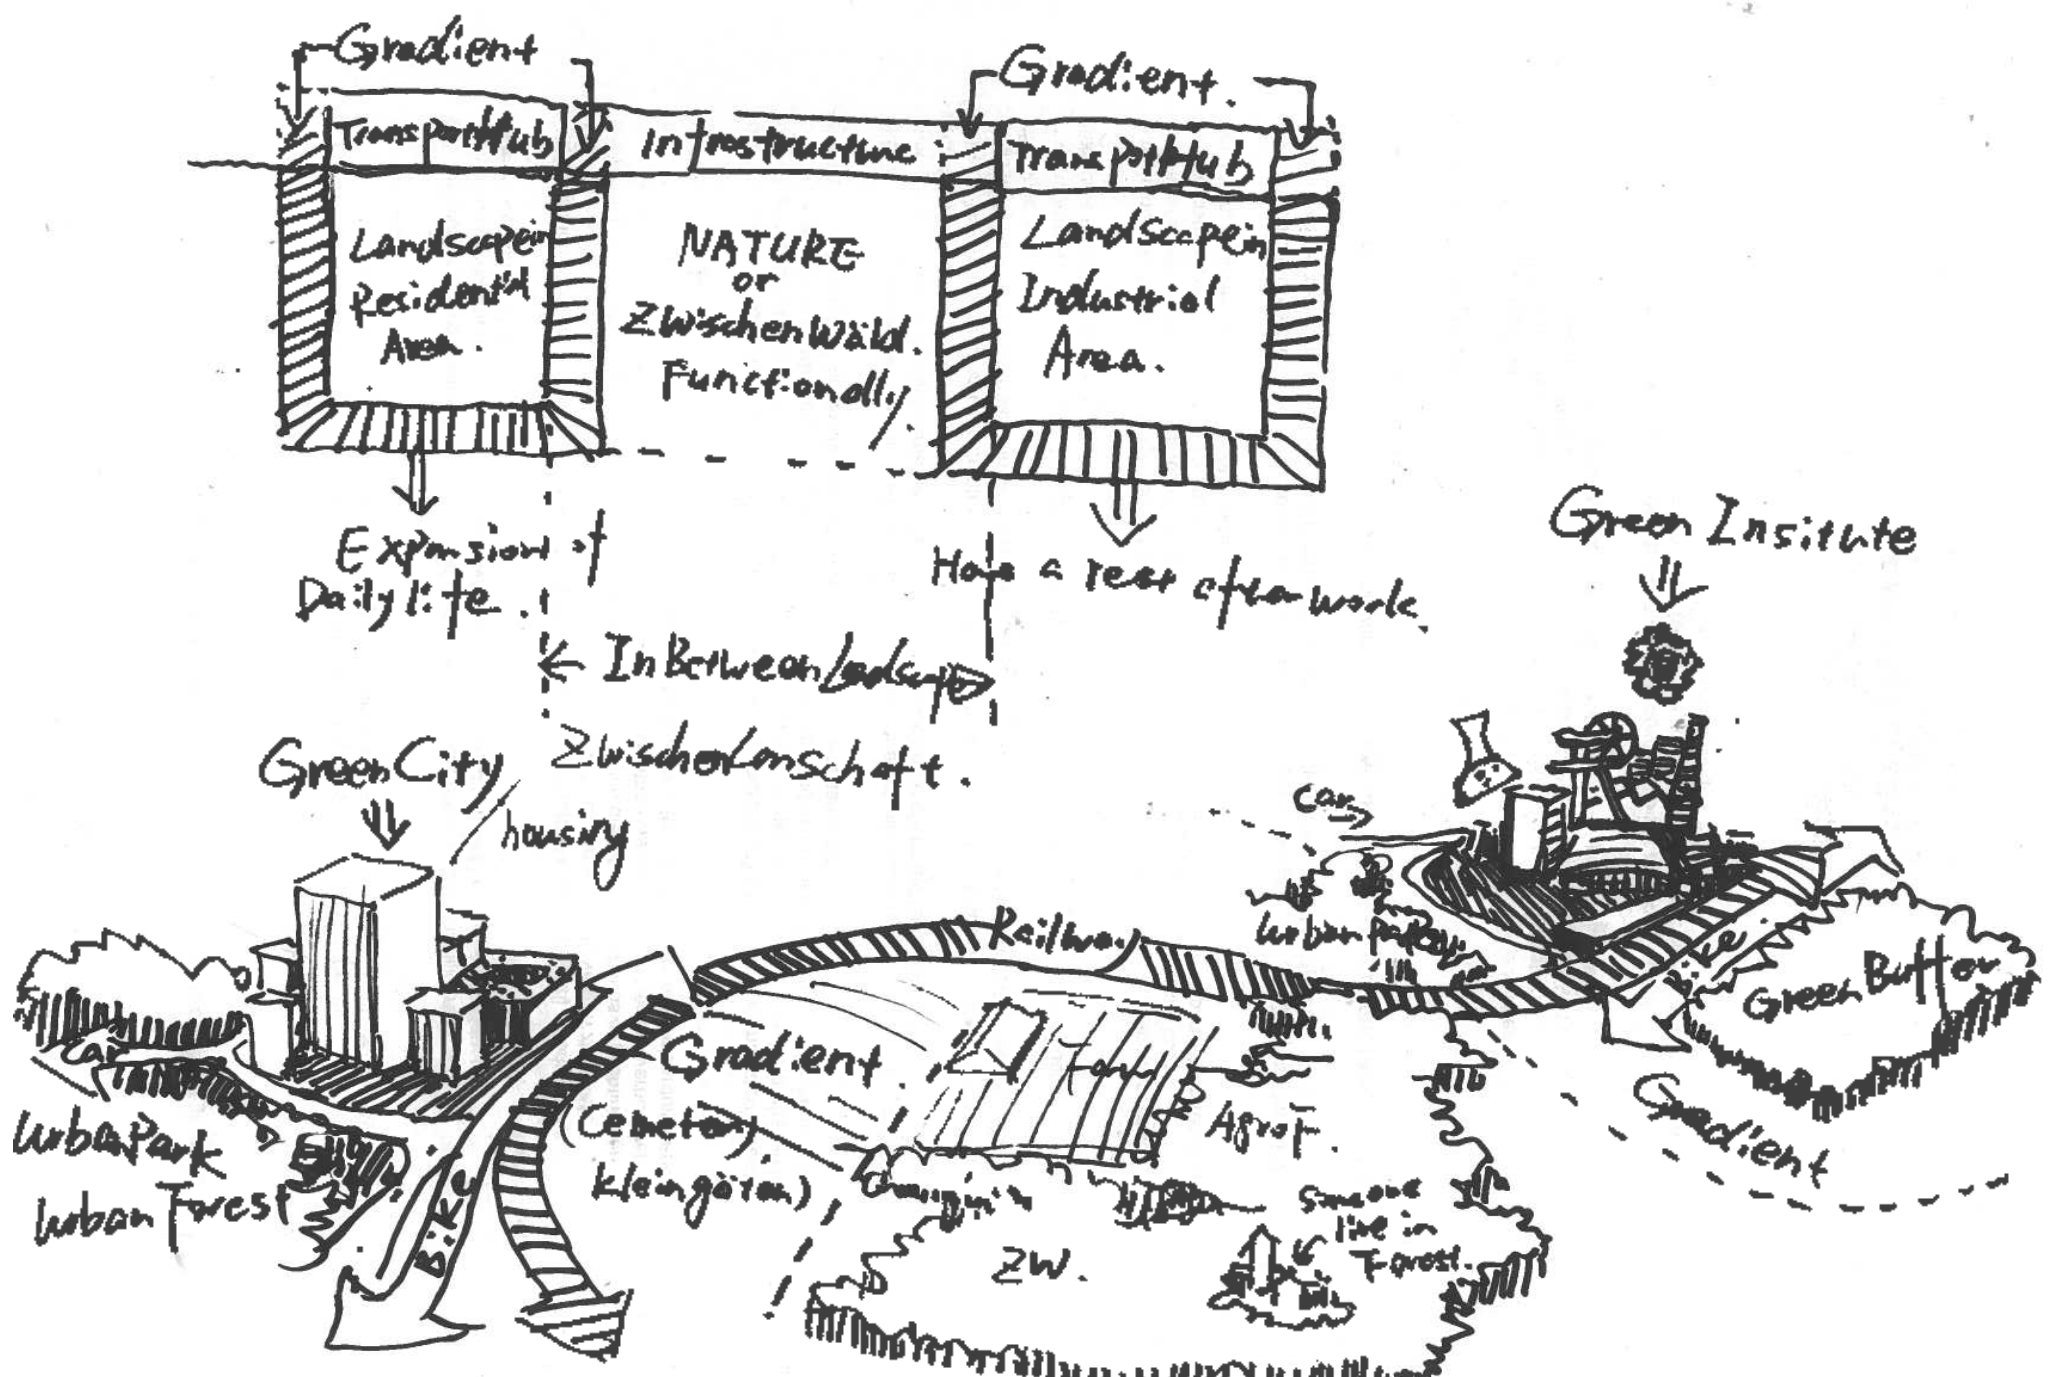 Gradient
Gradient.
TransportHub
Infrastructure
TransportHub
Landscapein
Residential
Area.
NATURE
or
ZwischenWäld.
Functionally.
Landscapein
Industrial
Area.
Expansion of
Dailylife.
Have a rest after work.
InBetween Landscape
Green Insitute
GreenCity
housing
car
Railway
Urban
Bike
Green Buffer
Gradient
Car
UrbanPark
Urban Forest
Bike
Gradient
(Cemetery
kleingärten)
Agrof.
ZW.
Someone
live in
Forest.